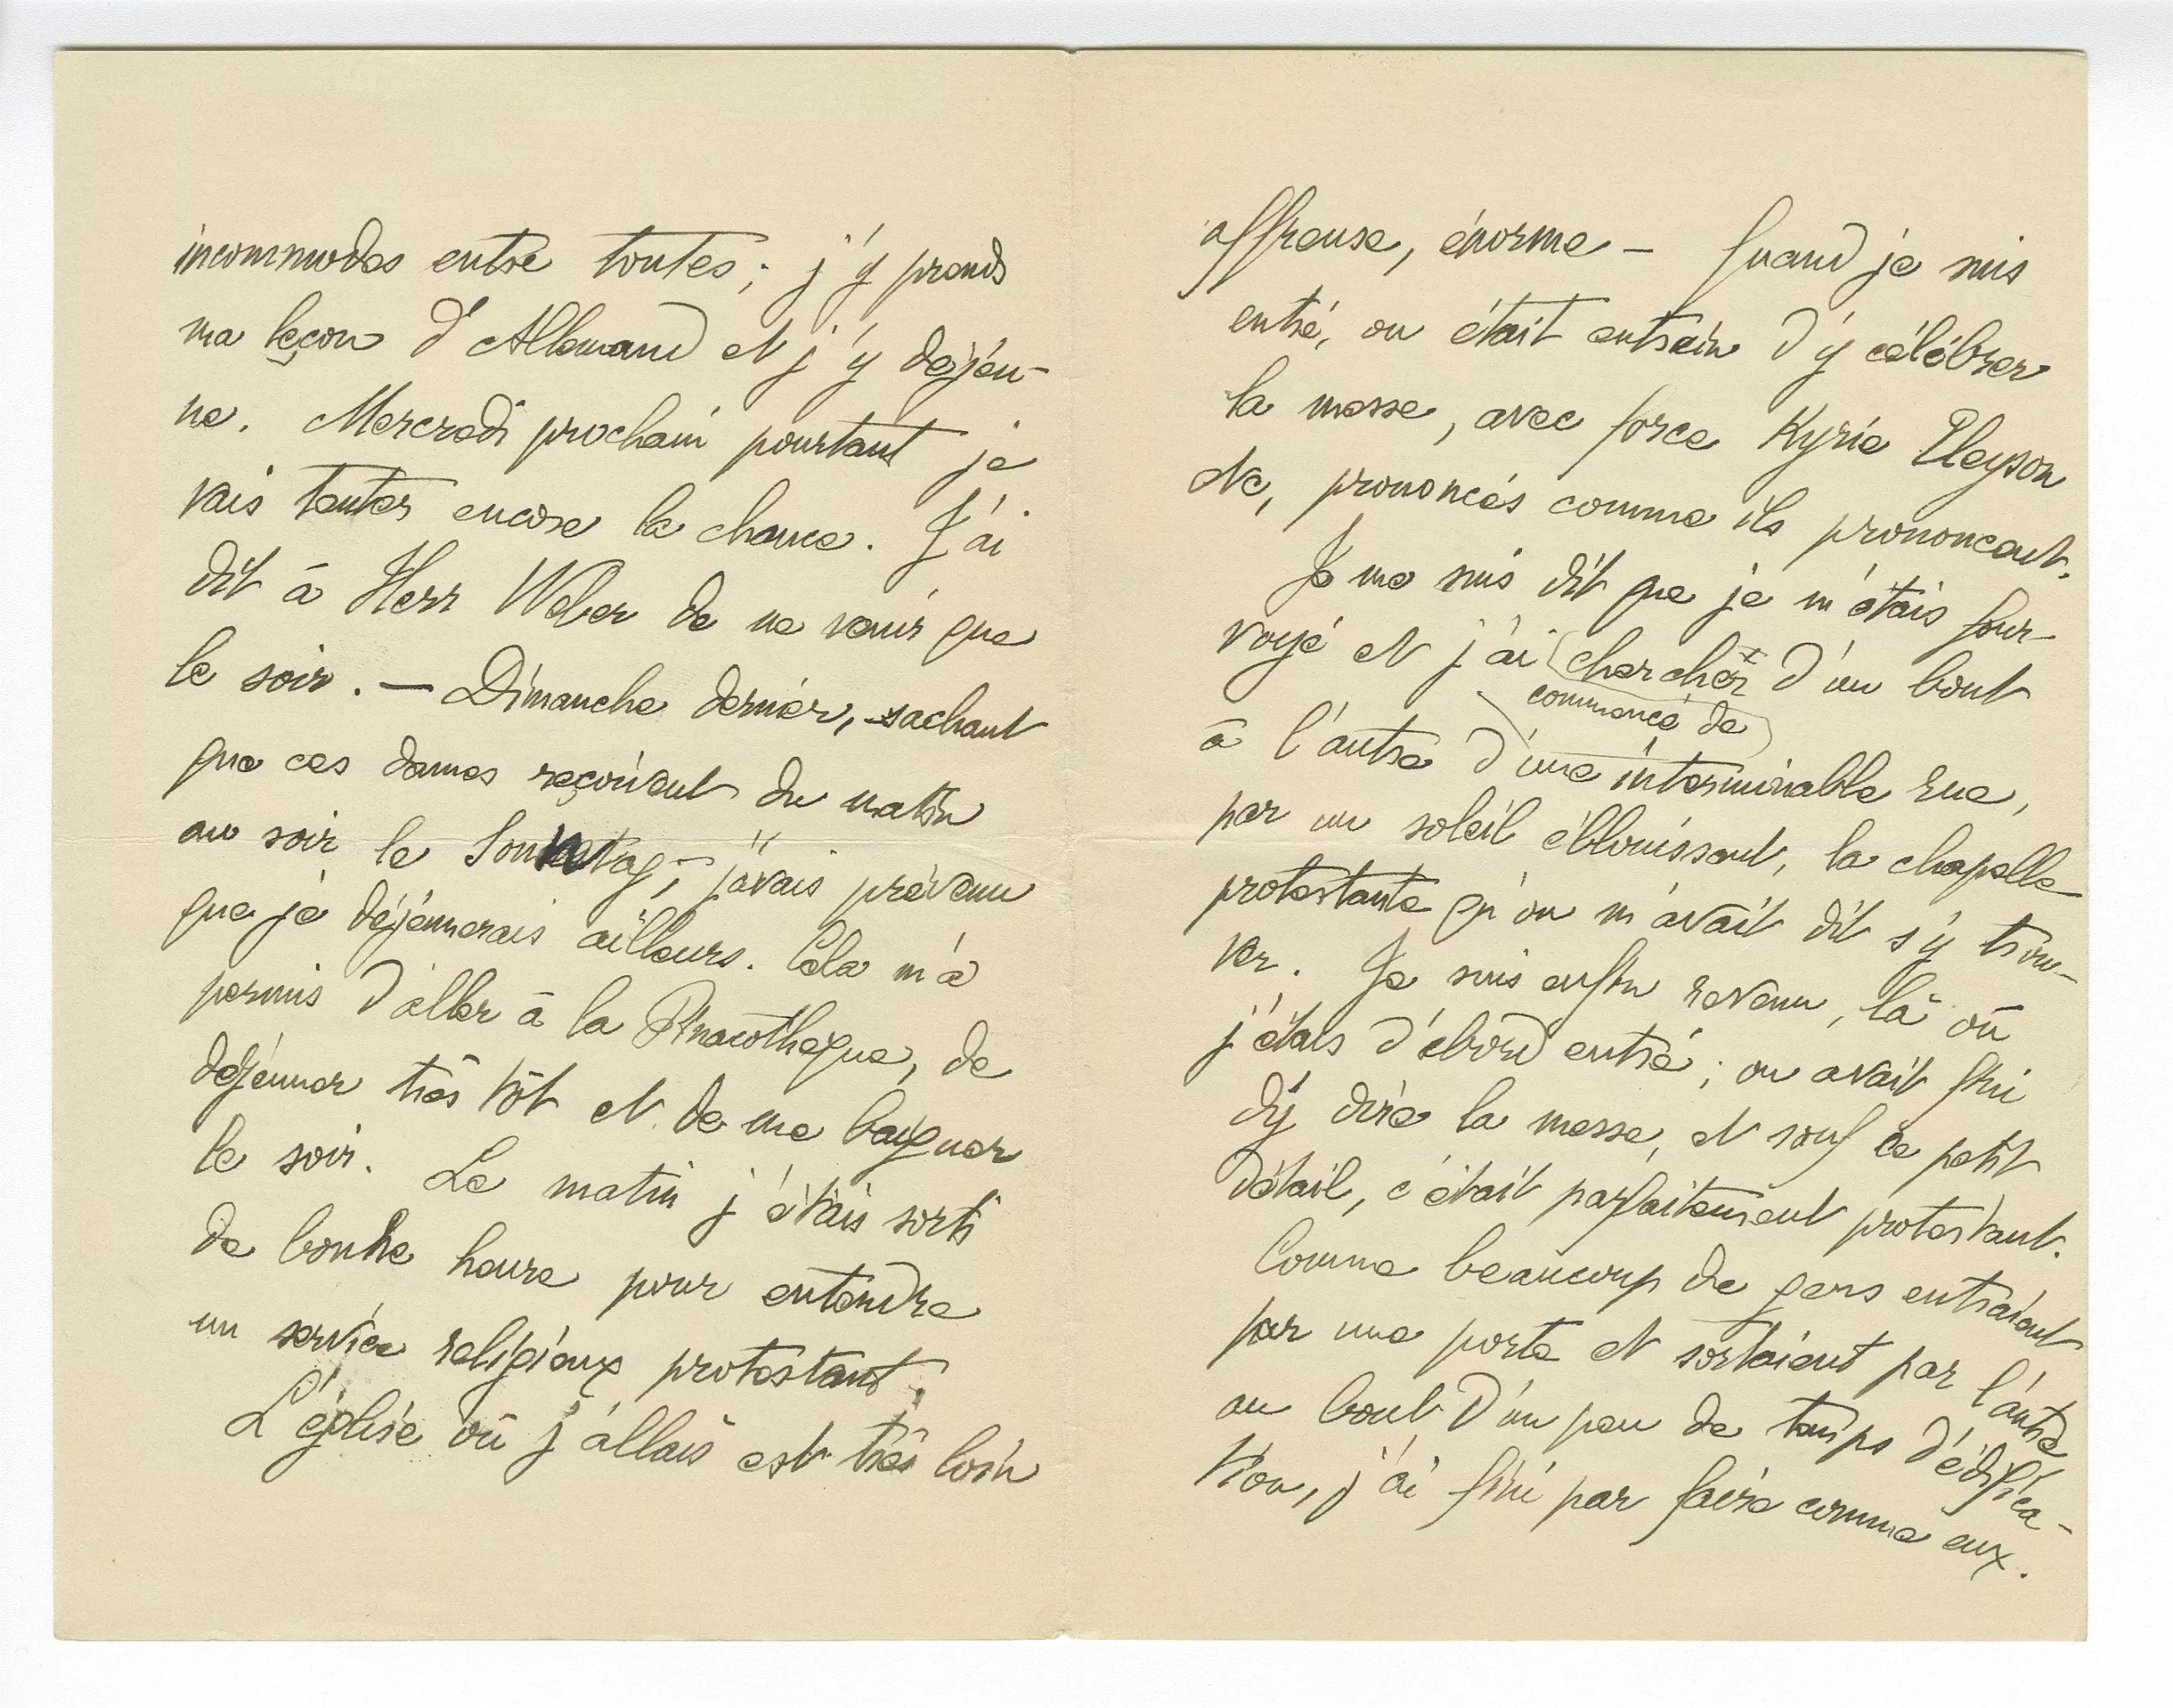 incommodes entre toutes ; j'y prends
ma leçon d'Allemand et j'y déjeu-
ne. Mercredi prochain pourtant je
vais tenter encore la chance. J'ai
dit à Herr Weber de ne venir que
le soir. — Dimanche dernier, sachant
que ces dames reçoivent du matin
au soir le Sonntag, j'avais prévenu
que je déjeunerais ailleurs. Cela m'a
permis d'aller à la Pinacothèque, de
déjeuner très tôt et de me baigner
le soir. Le matin j'étais sorti
de bonne heure pour entendre
un service religieux protestant.
L'église où j'allais est très loin
affreuse, énorme — Quand je suis
entré, on était entrain d'y célébrer
la messe, avec force Kyrie Eleyson
etc, prononcés comme ils prononcent.
Je me suis dit que je m'étais four-
voyé et j'ai chercher d'un bout
commencé de
à l'autre d'une interminable rue,
par un soleil éblouissant, la chapelle
protestante qu'on m'avait dit s'y trou-
ver. Je suis enfin revenu, là où
j'étais d'abord entré ; on avait fini
d'y dire la messe, et sauf ce petit
détail, c'était parfaitement protestant.
Comme beaucoup de gens entraient
par une porte et sortaient par l'autre
au bout d'un peu de temps d'édifica-
tion, j'ai fini par faire comme eux.